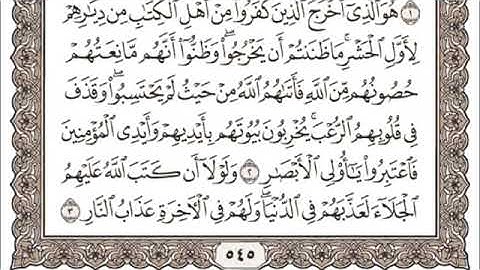 ١ هُوَ ٱلَّذِىٓ أَخْرَجَ ٱلَّذِينَ كَفَرُوا۟ مِنْ أَهْلِ ٱلْكِتَٰبِ مِن دِيَٰرِهِمْ
لِأَوَّلِ ٱلْحَشْرِ ۚ مَا ظَنَنتُمْ أَن يَخْرُجُوا۟ ۖ وَظَنُّوٓا۟ أَنَّهُم مَّانِعَتُهُمْ
حُصُونُهُم مِّنَ ٱللَّهِ فَأَتَىٰهُمُ ٱللَّهُ مِنْ حَيْثُ لَمْ يَحْتَسِبُوا۟ ۖ وَقَذَفَ
فِى قُلُوبِهِمُ ٱلرُّعْبَ ۚ يُخْرِبُونَ بُيُوتَهُم بِأَيْدِيهِمْ وَأَيْدِى ٱلْمُؤْمِنِينَ
فَٱعْتَبِرُوا۟ يَٰٓأُو۟لِى ٱلْأَبْصَٰرِ ٢ وَلَوْلَآ أَن كَتَبَ ٱللَّهُ عَلَيْهِمُ
ٱلْجَلَآءَ لَعَذَّبَهُمْ فِى ٱلدُّنْيَا ۖ وَلَهُمْ فِى ٱلْءَاخِرَةِ عَذَابُ ٱلنَّارِ ٣
٥٤٥